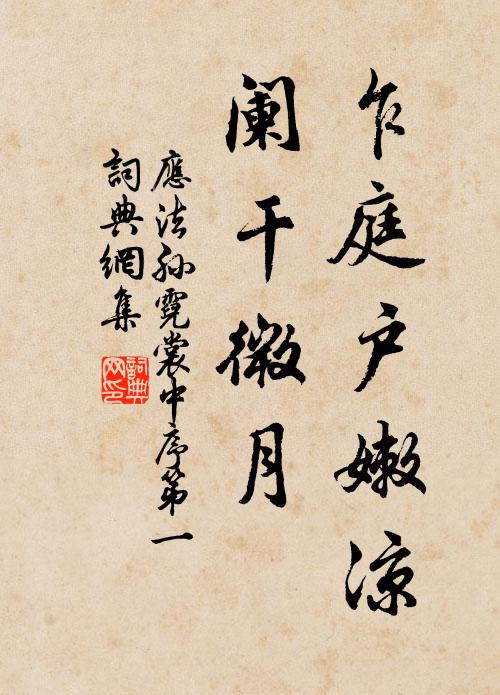 乍庭户嫩凉
阑干微月
應法孫霓裳中序第一
詞典網集
詞典
网印